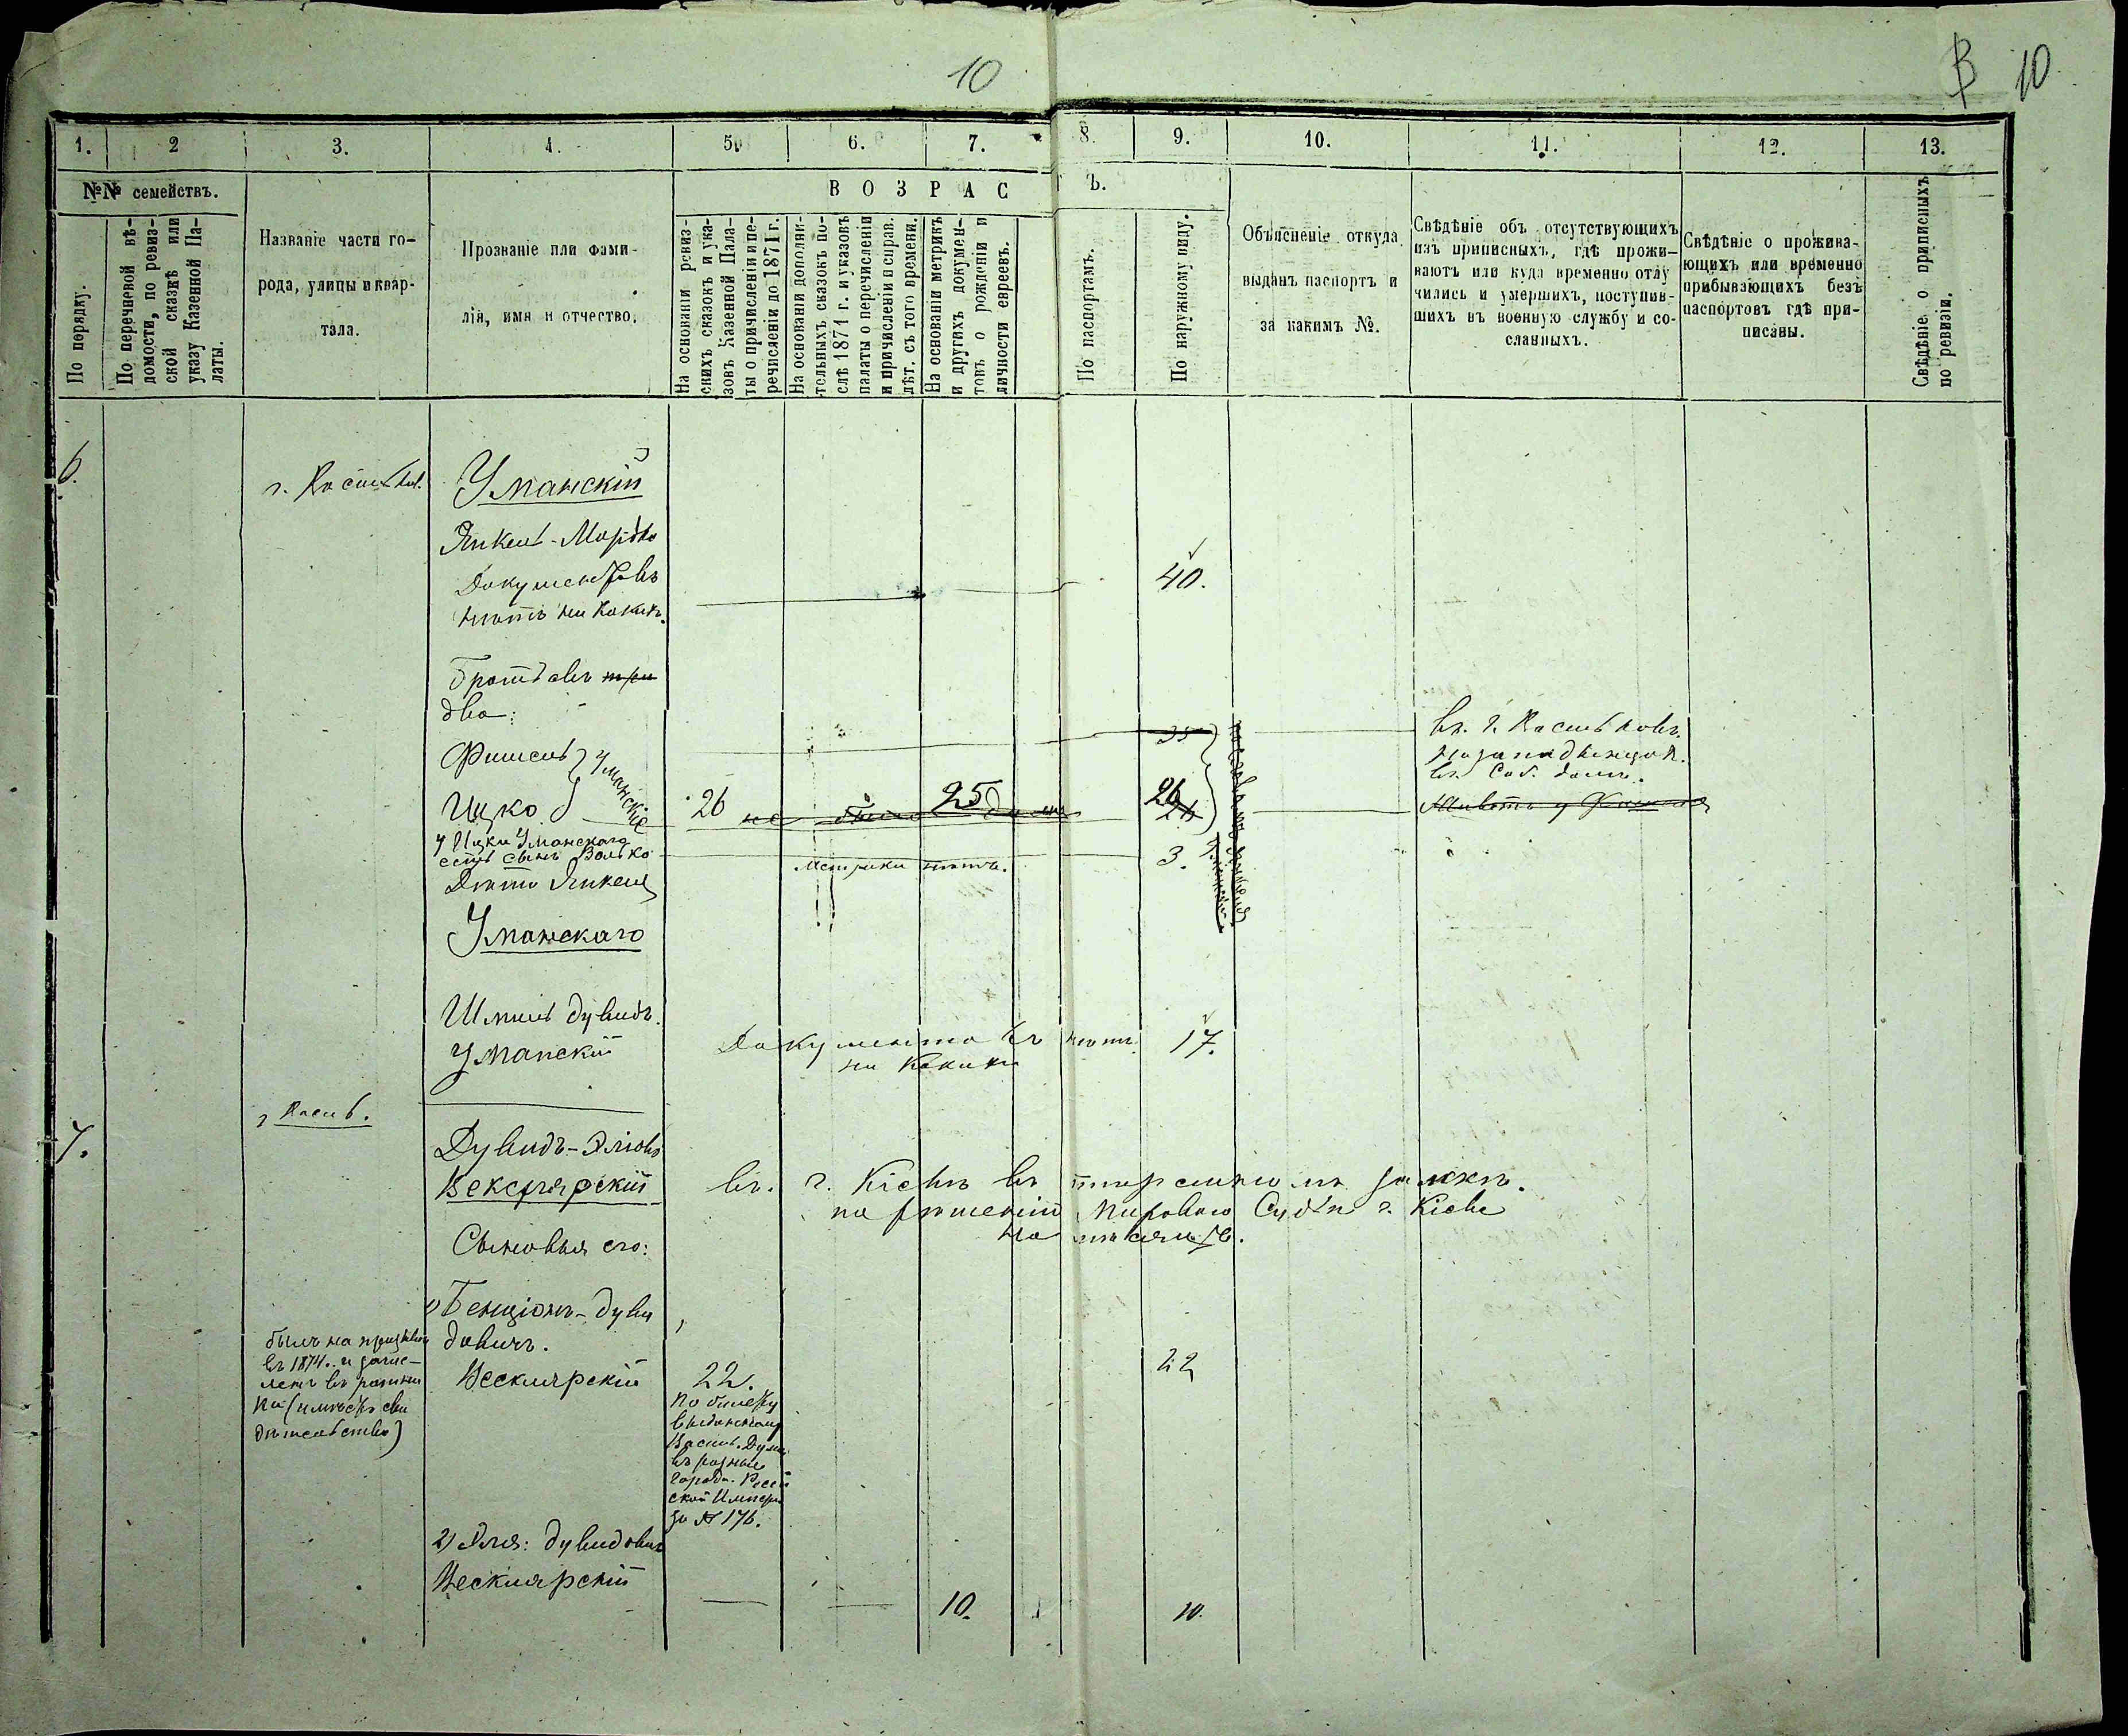 10
В 10
1. 2 3. 4. 5. 6. 7. 8. 9. 10. 11. 12. 13.
№№ семействъ.
По порядку.
По перечневой вѣ-
домости, по ревиз-
ской сказкѣ или
указу Казенной Па-
латы.
Названіе части го-
рода, улицы и квар-
тала.
Прозваніе или фами-
лія, имя и отчество.
ВОЗРАС Ъ.
На основаніи ревиз-
скихъ сказокъ и ука-
зовъ Казенной Пала-
ты о причисленіи и пе-
речисленіи до 1871 г.
На основаніи дополни-
тельныхъ сказокъ по-
слѣ 1871 г. и указовъ
палаты о перечисленіи
и причисленіи и справ.
лѣт. съ того времени.
На основаніи метрикъ
и другихъ докумен-
товъ о рожденіи и
личности евреевъ.
По паспортамъ.
По наружному виду.
Объясненіе откуда
выданъ паспортъ и
за какимъ №.
Свѣдѣніе объ отсутствующихъ
изъ приписныхъ, гдѣ прожи-
ваютъ или куда временно отлу
чились и умершихъ, поступив-
шихъ въ военную службу и со-
сланныхъ.
Свѣдѣніе о прожива-
ющихъ или временно
прибывающихъ безъ
паспортовъ гдѣ при-
писаны.
Свѣдѣніе о приписныхъ
по ревизіи.
6.
г. Васильк.
Уманскій
Янкель-Мордко
Документовъ
нѣтъ ни какихъ.
40.
Братьевъ три
два:
Фишель
Уманскіе
35
въ г. Васильковѣ.
въ Соб. домѣ.
Ицко
26
не было
25
26
Живетъ у Фишеля
у Ицки Уманскаго
есть сынъ Волько
метрики нѣтъ.
3.
Дѣти Янкеля
Уманскаго
Шмиль Дувидъ.
Уманскій
Документовъ нѣтъ
ни какихъ
17.
7.
г Васил.
Дувидъ-Эліовъ
Векслярскій
въ. г. Кіевѣ въ тюремномъ замкѣ.
по рѣшенію Мирового Судьи г. Кіева
Сыновья его:
1) Бенціонъ-Дуви
довичъ.
Векслярскій
былъ на призывѣ
въ 1874. и зачис-
ленъ въ ратни
ки (имѣетъ сви
дѣтельство)
22.
по билету
выданному
Васил. Думы
въ разные
города Россій
ской Имперіи
за № 176.
22
2) Эля: Дувидовъ
Векслярскій
10.
10.